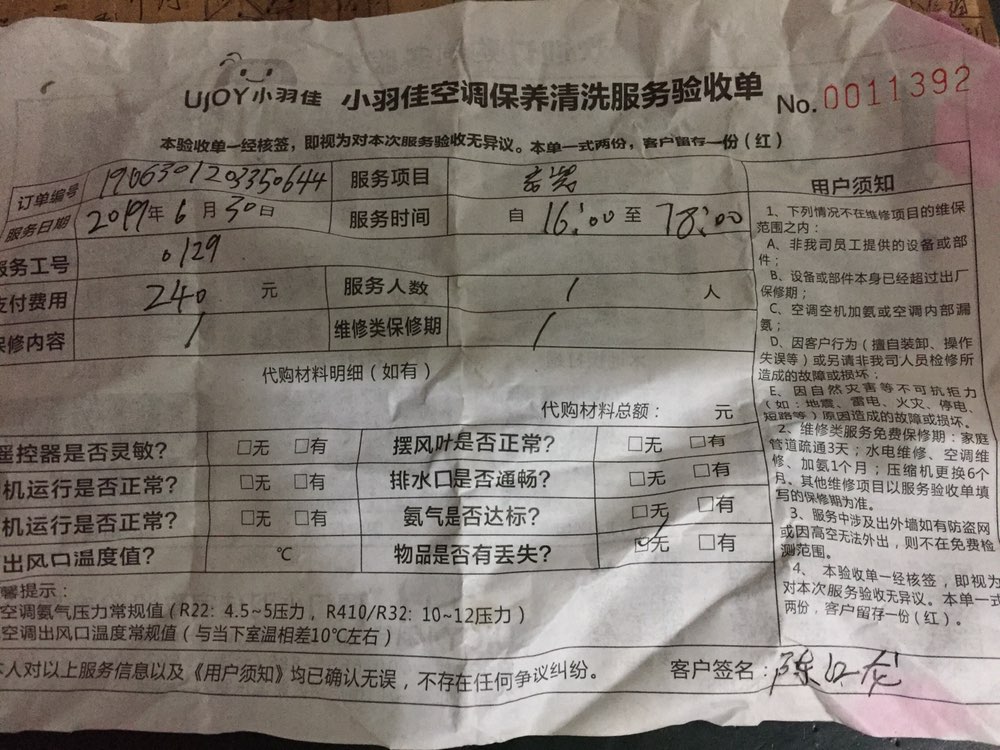 UJOY小羽佳 小羽佳空调保养清洗服务验收单 No.0011392
本验收单一经核签，即视为对本次服务验收无异议。本单一式两份，客户留存一份（红）
订单编号 1906301203350644 服务项目
服务日期 2019年6月30日 服务时间 自 16:00 至 18:00
服务工号 0129
支付费用 240 元 服务人数 1 人
保修内容 / 维修类保修期 /
代购材料明细（如有）
代购材料总额： 元
遥控器是否灵敏？ □无 □有 摆风叶是否正常？ □无 □有
机运行是否正常？ □无 □有 排水口是否通畅？ □无 □有
机运行是否正常？ □无 □有 氨气是否达标？ □无 □有
出风口温度值？ ℃ 物品是否有丢失？ ☑无 □有
馨提示：
空调氨气压力常规值（R22: 4.5~5压力，R410/R32: 10~12压力）
空调出风口温度常规值（与当下室温相差10℃左右）
本人对以上服务信息以及《用户须知》均已确认无误，不存在任何争议纠纷。
客户签名：
用户须知
1、下列情况不在维修项目的维保
范围之内：
A、非我司员工提供的设备或部
件；
B、设备或部件本身已经超过出厂
保修期；
C、空调空机加氨或空调内部漏
氨；
D、因客户行为（擅自装卸、操作
失误等）或另请非我司人员检修所
造成的故障或损坏；
E、因自然灾害等不可抗拒力
（如：地震、雷电、火灾、停电、
短路等）原因造成的故障或损坏。
2、维修类服务免费保修期：家庭
管道疏通3天；水电维修、空调维
修、加氨1个月；压缩机更换6个
月、其他维修项目以服务验收单填
写的保修期为准。
3、服务中涉及出外墙如有防盗网
或因高空无法外出，则不在免费检
测范围。
4、本验收单一经核签，即视为
对本次服务验收无异议。本单一式
两份，客户留存一份（红）。